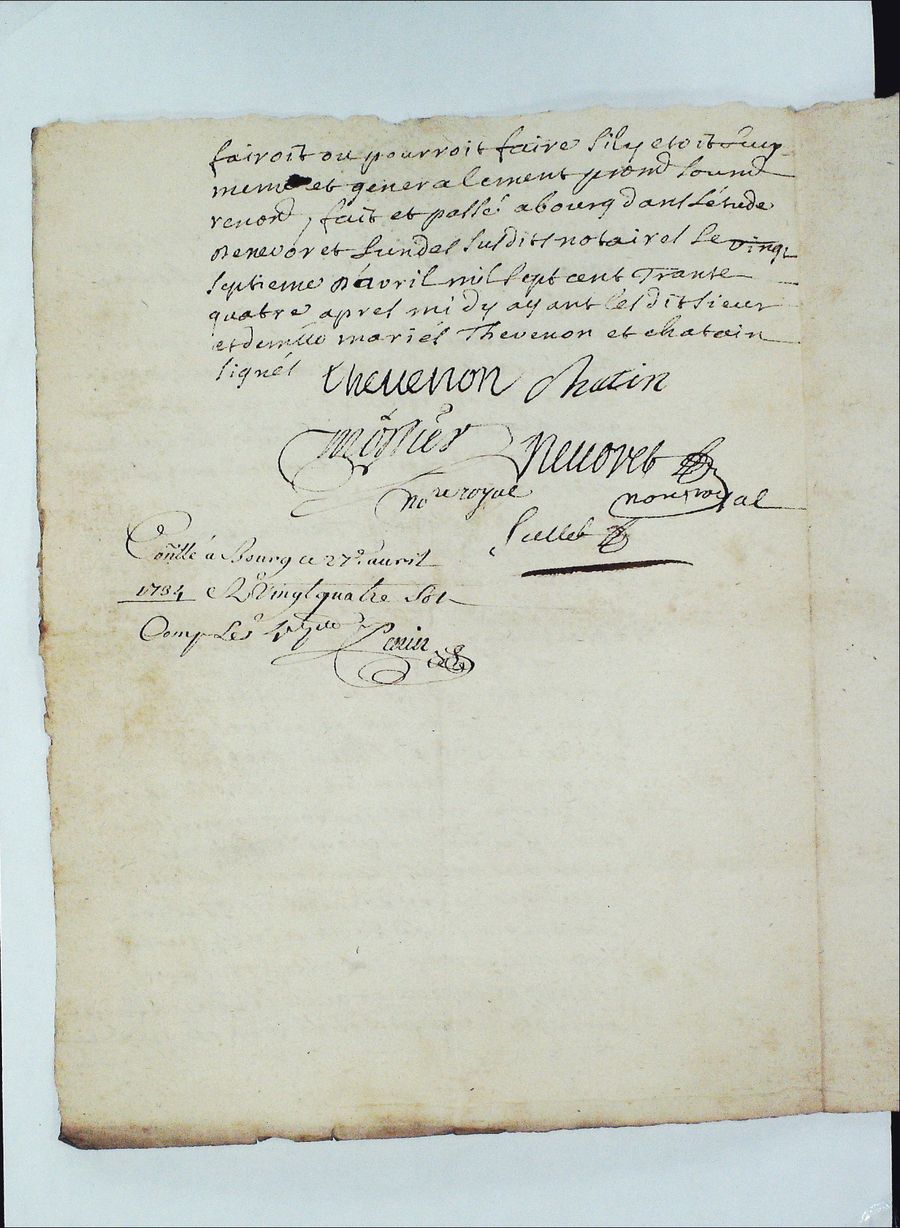 fairoit ou pourroit faire sil y etoit Luy
meme et generalement prom soumd
renond, fait et passé a bourg dans l'étude
de nevoret Lun des susdits notaires Le vingt
septieme d'avril mil sept cent Trante
quatre apres midy ayant lesdits sieur
et demlle mariés Thevenon et chatain
signés
thevenon chatin
nevoret
nore royal
nore royal
Conllé à Bourg ce 27e avril
1734 Rt vingt quatre sols
Comp Les